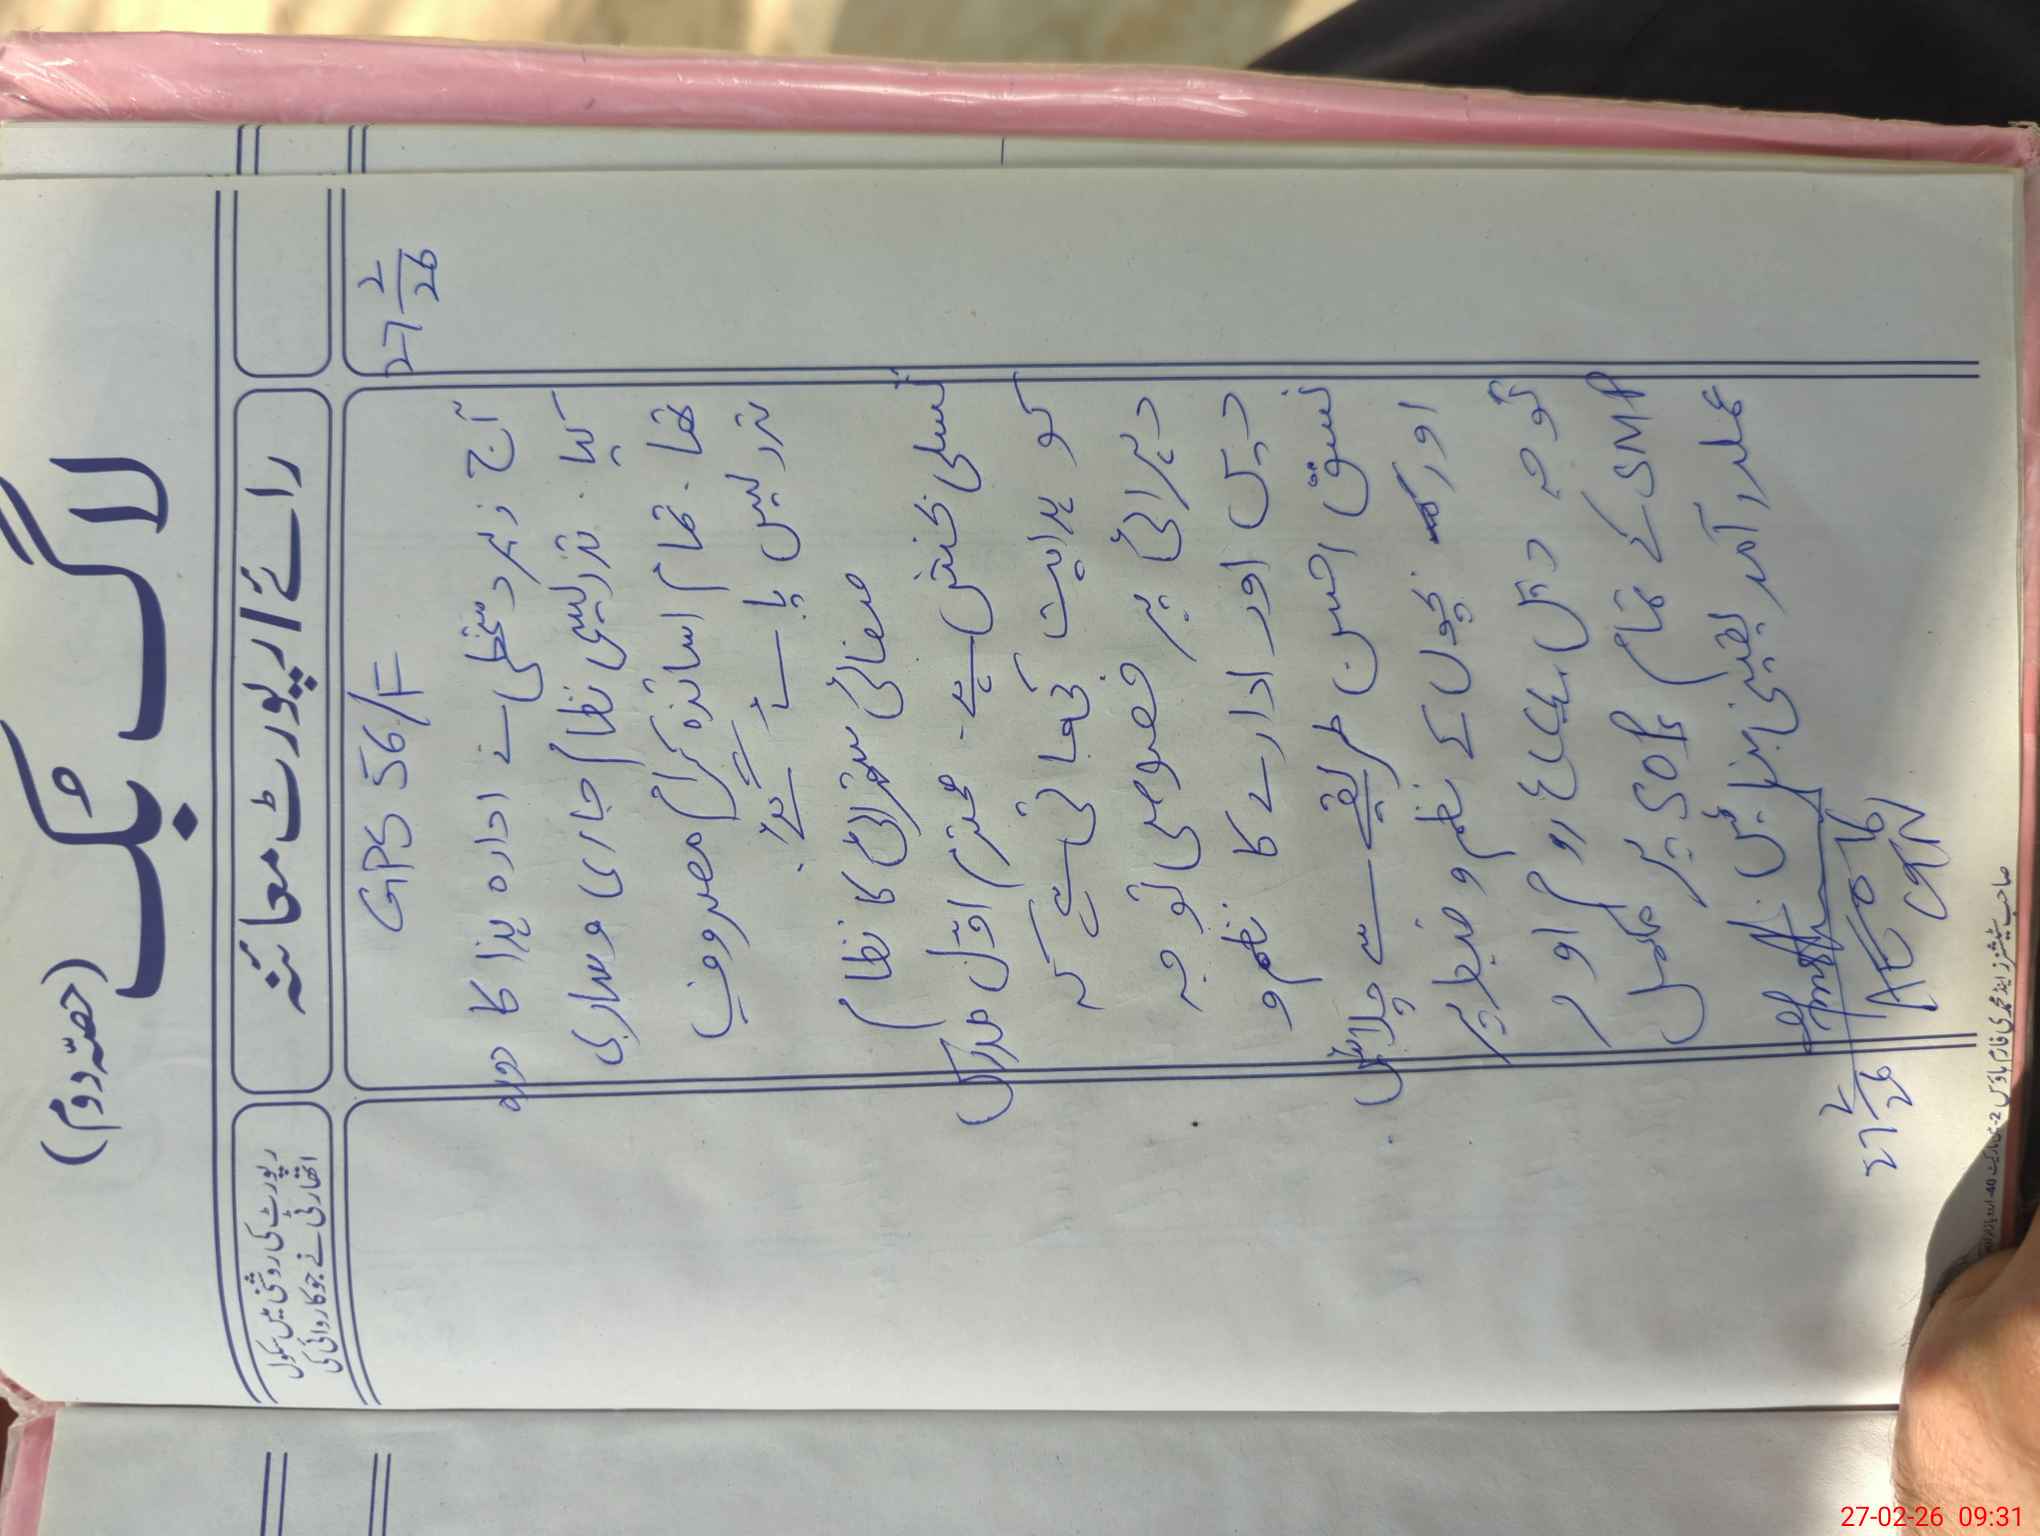 لاگ بُک
(حصّہ دوم)
رائے / رپورٹ معائنہ
رپورٹ کی روشنی میں سکول
اتھارٹی نے جو کاروائی کی
27 2/26
GPS 56/F
آج زیر دستخطی نے ادارہ ہذا کا دورہ
کیا ۔ تدریسی نظام جاری و ساری
تھا ۔ تمام اساتذہ کرام مصروف
تدریس پائے گئے ۔
صفائی ستھرائی کا نظام
تسلی بخش ہے ۔ محترم اول مدرس
کو ہدایت کی جاتی ہے کہ
دہرائی پر خصوصی توجہ
دیں اور ادارے کا نظم و
نسق احسن طریقے سے چلائیں ۔
اور بچوں کے نظم و ضبط پر
توجہ دیں، روم اور
SMP کے تمام SOPs پر مکمل
عملدرآمد یقینی بنائیں
27 2/26
27-02-26 09:31